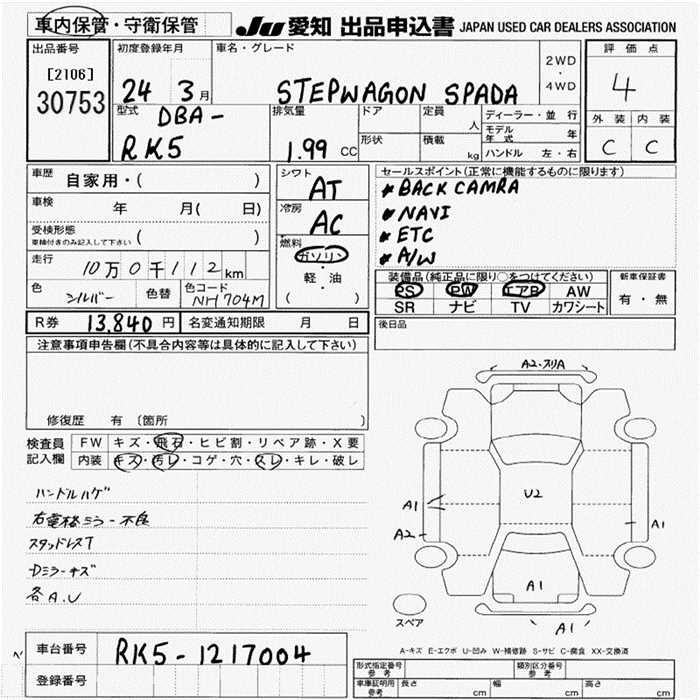 車内保管・守衛保管
JU 愛知 出品申込書 JAPAN USED CAR DEALERS ASSOCIATION
出品番号
[2106]
30753
初度登録年月
24 3月
車名・グレード
STEPWAGON SPADA
2WD
・
4WD
評価点
4
外装 内装
C C
型式
DBA-
RK5
排気量
1.99 CC
ドア
形状
定員
人
積載
kg
ディーラー・並行
モデル年式 年
ハンドル 左・右
車歴 自家用・( )
車検 年 月( 日)
受検形態
車検付きのみ記入して下さい ( )
走行 10万0千112km
色 シルバー 色替 色コード NH704M
シフト
AT
冷房
AC
燃料
ガソリン
・
軽・油
( )
セールスポイント(正常に機能するものに限ります)
BACK CAMRA
NAVI
ETC
A/W
装備品(純正品に限り○をつけてください)
PS PW エアB AW
SR ナビ TV カワシート
新車保証書
有・無
R券 13,840円 名変通知期限 月 日
後日品
注意事項申告欄(不具合内容等は具体的に記入して下さい)
修復歴 有 〔箇所
検査員記入欄
FW キズ・飛石・ヒビ割・リペア跡・X要
内装 キズ・汚レ・コゲ・穴・スレ・キレ・破レ
ハンドルハゲ
右電格ミラー不良
スタッドレスT
Dミラーキズ
各A.U
A2・スリA
U2
A1
A2
A1
A1
A1
スペア
A-キズ E-エクボ U-凹み W-補修跡 S-サビ C-腐食 XX-交換済
車台番号 RK5-1217004
登録番号
形式指定番号
参考
類別区分番号
参考
車庫証明用
参考
長さ cm 幅 cm 高さ cm